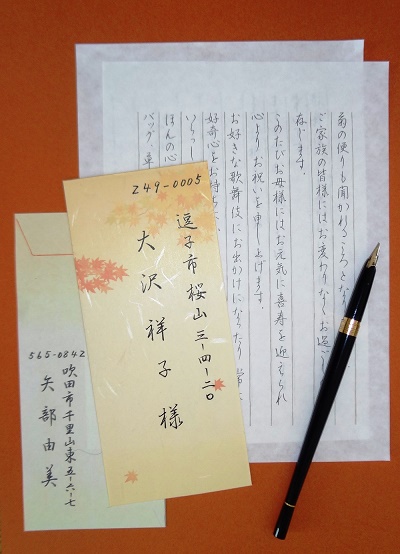 菊の便りも聞かれるころとなり
ご家族の皆様にはお変わりなくお過ごし
存じます。
このたびお母様にはお元気に喜寿を迎えられ
心よりお祝いを申し上げます。
お好きな歌舞伎にお出かけになったり
好奇心をお持ち
いらっし
ほんの心
バッグ、
249-0005
逗子市桜山三-四-二〇
大沢祥子様
565-0842
吹田市千里山東五-六-七
矢部由美